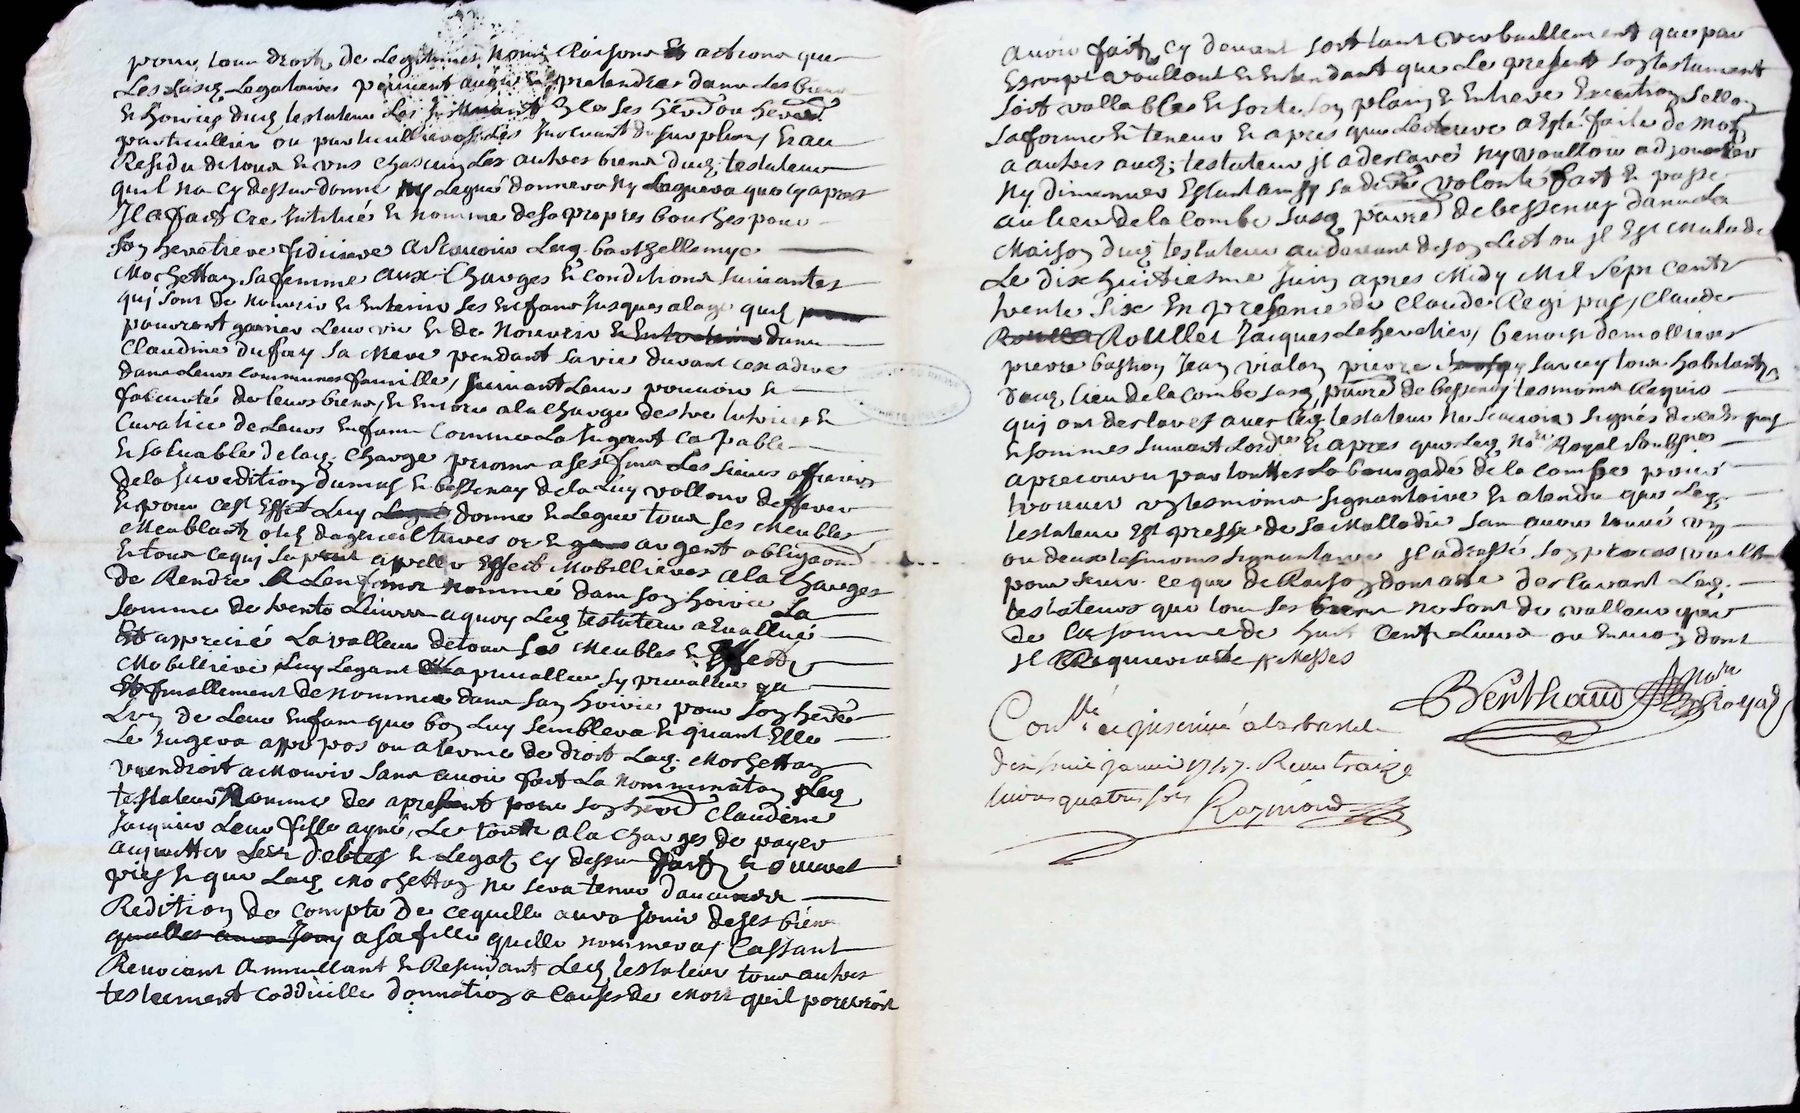 pour tous droits de Legitimes noms Raisons Et actions que
Les susd Legataires peuvent auoir Et pretendre dans Les biens
Et hoirie dud testateur Les Instituant En ce ses herd ou herd
particullier ou particullieres Les Excluant du surplus, Et au
Residu de tous Et uns chascuns Les autres biens dud; testateur
quil na cy dessus donné ny Legué donnera ny Leguera que cy apres
Il a fait cré Institué Et nommé de sa propre bouche pour
son heretiere fiduciaire a scauoir Lad. barthellemye
Mochettan sa femme aux charges Et conditions suiuantes
qui sont de nourrir Et Entenir ses Enfans Jusques a lage quils
pouuront gainier Leur vie Et de nourrir dame
Claudine dufay sa mere pendant sa vie durant
dans Leurs communes famille, suiuant Leurs pouuoir Et
facultés de Leurs biens, Et Encore a la charge destre tutrice Et
Curatrice de Leurs Enfans comme La Jugeant capable
Et soluable de lad. charge
de la Jurisdition dumas Et bessenay de la Luy voulloir defferer
Et pour cest Effet Luy donne Et Legue tous ses Meubles
Meublants otils dagricultures or Et argent obligaons
Et tous ce qui se peut apeller Effets Mobilliaires a la charges
de Rendre a Lenfant nommé dans son hoirie La
somme de trente Liures a quoy Led testateur a Evallué
Et apprecié La valleur de tous ses Meubles Et Effects
Mobilliere, Luy Legant La preuallue sy preuallue y a
Et finallement de nommer dans son hoirie pour son herd
Lun de Leur Enfans que bon Luy semblera Et quant Elle
Le Jugera appropos ou a terme de droit Lad. Mochettan
viendroit a Mourir sans auoir fait La nommination Led
testateur Nomme des apresent pour son herd Claudine
Jacquier Leur fille aynée, Le tout a la charges de payer
acquitter Les debtes Et Legat cy dessus faits Et œuures
pies Et que Lad Mochettan ne sera tenue daucunes
Redition de compte de ce quelle aura Jouie de ses biens
quelles aura Jouy a sa fille quelle nommera, Cassant
Reuocant Annullant Et Resindant Led testateur tous autres
testament coddicille donnation a Causes de Mort quil pourroit
auoir fait cy deuant soit tant verballement que par
Escript voullant Et Entendant que Le present son testament
soit vallable Et sorte son plain Et Entieres Execution sellon
sa forme Et teneur Et apres que Lecteure a Esté faite de Mot
a autres aud; testateur Il a declaré ny voulloir adjouster
ny diminuer Estant ainssy sa de volonté fait Et passé
au lieu de la Combe susd paroisse de bessenay dans La
Maison dud testateur au deuant de son Lict ou Il Est malade
Le dixhuitiesme Juin apres Midy Mil sept cents
trente six En presence de Claude Claude
Roulla Roullet Jacques Lecheuallier, Benoist demollieres
pierre basson Jean vialon pierre sarcey tous habitants
dud. lieu de la Combe susd. paroisse de bessenay tesmoins Requis
qui ont declarés auec led testateur ne scauoir signés de ce Enquis
Et sommés suiuant Lordce Et apres que Led. nore Royal soubsigné
a parcouru par touttes La bourgade de la combe pour
trouuer vn tesmoins signantaire Et atandu que Led.
testateur Est pressé de sa Malladie sans auoir trouué un
ou deux tesmoins signantaires Il a dressé son
pour seruir ce que de Raison dont acte declarant Led.
testateurs que tous ses biens ne sont de valleur que
de La somme de huit Cents Liures ou Enuiron dont
Il Requiert acte
Benthaud nore Royal
Conllé et Insinué a larbresle
dix huit januier 1747. Receu traize
liures quatre sols Raymond